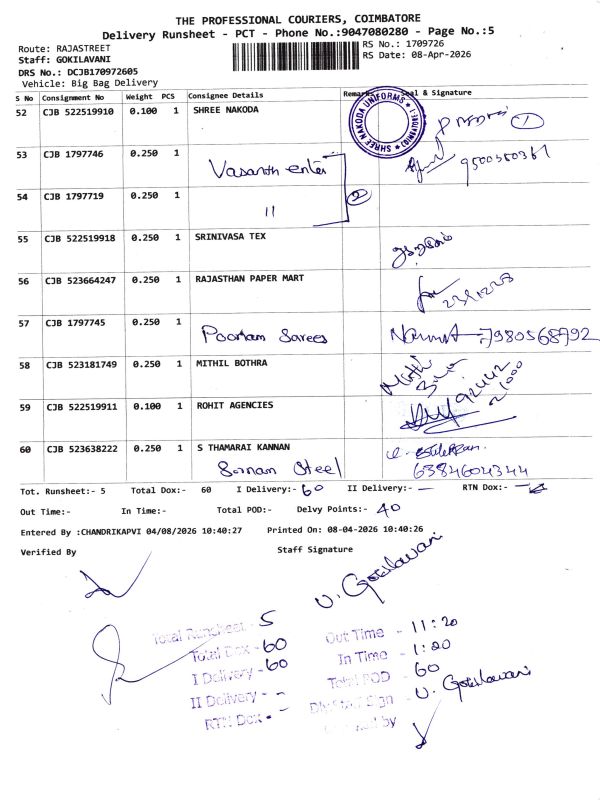 THE PROFESSIONAL COURIERS, COIMBATORE
Delivery Runsheet - PCT - Phone No.:9047080280 - Page No.:5
Route: RAJASTREET
RS No.: 1709726
Staff: GOKILAVANI
RS Date: 08-Apr-2026
DRS No.: DCJB170972605
Vehicle: Big Bag Delivery
S No Consignment No Weight PCS Consignee Details Remarks Seal & Signature
52 CJB 522519910 0.100 1 SHREE NAKODA
SHREE NAKODA UNIFORMS
1
53 CJB 1797746 0.250 1 Vasanth enter 9500550367
54 CJB 1797719 0.250 1 11 2
55 CJB 522519918 0.250 1 SRINIVASA TEX
56 CJB 523664247 0.250 1 RAJASTHAN PAPER MART
57 CJB 1797745 0.250 1 Poonam Sarees 7980568792
58 CJB 523181749 0.250 1 MITHIL BOTHRA
59 CJB 522519911 0.100 1 ROHIT AGENCIES 92442 21000
60 CJB 523638222 0.250 1 S THAMARAI KANNAN
Sornam Steel 6384604344
Tot. Runsheet:- 5 Total Dox:- 60 I Delivery:- 60 II Delivery:- — RTN Dox:- —
Out Time:- In Time:- Total POD:- Delvy Points:- 40
Entered By :CHANDRIKAPVI 04/08/2026 10:40:27 Printed On: 08-04-2026 10:40:26
Verified By Staff Signature
U. Gokilavani
Total Runsheet - 5
Total Dox - 60
I Delivery - 60
II Delivery - -
RTN Dox - -
Out Time - 11:20
In Time - 1:20
Total POD - 60
Sign - U. Gokilavani
by